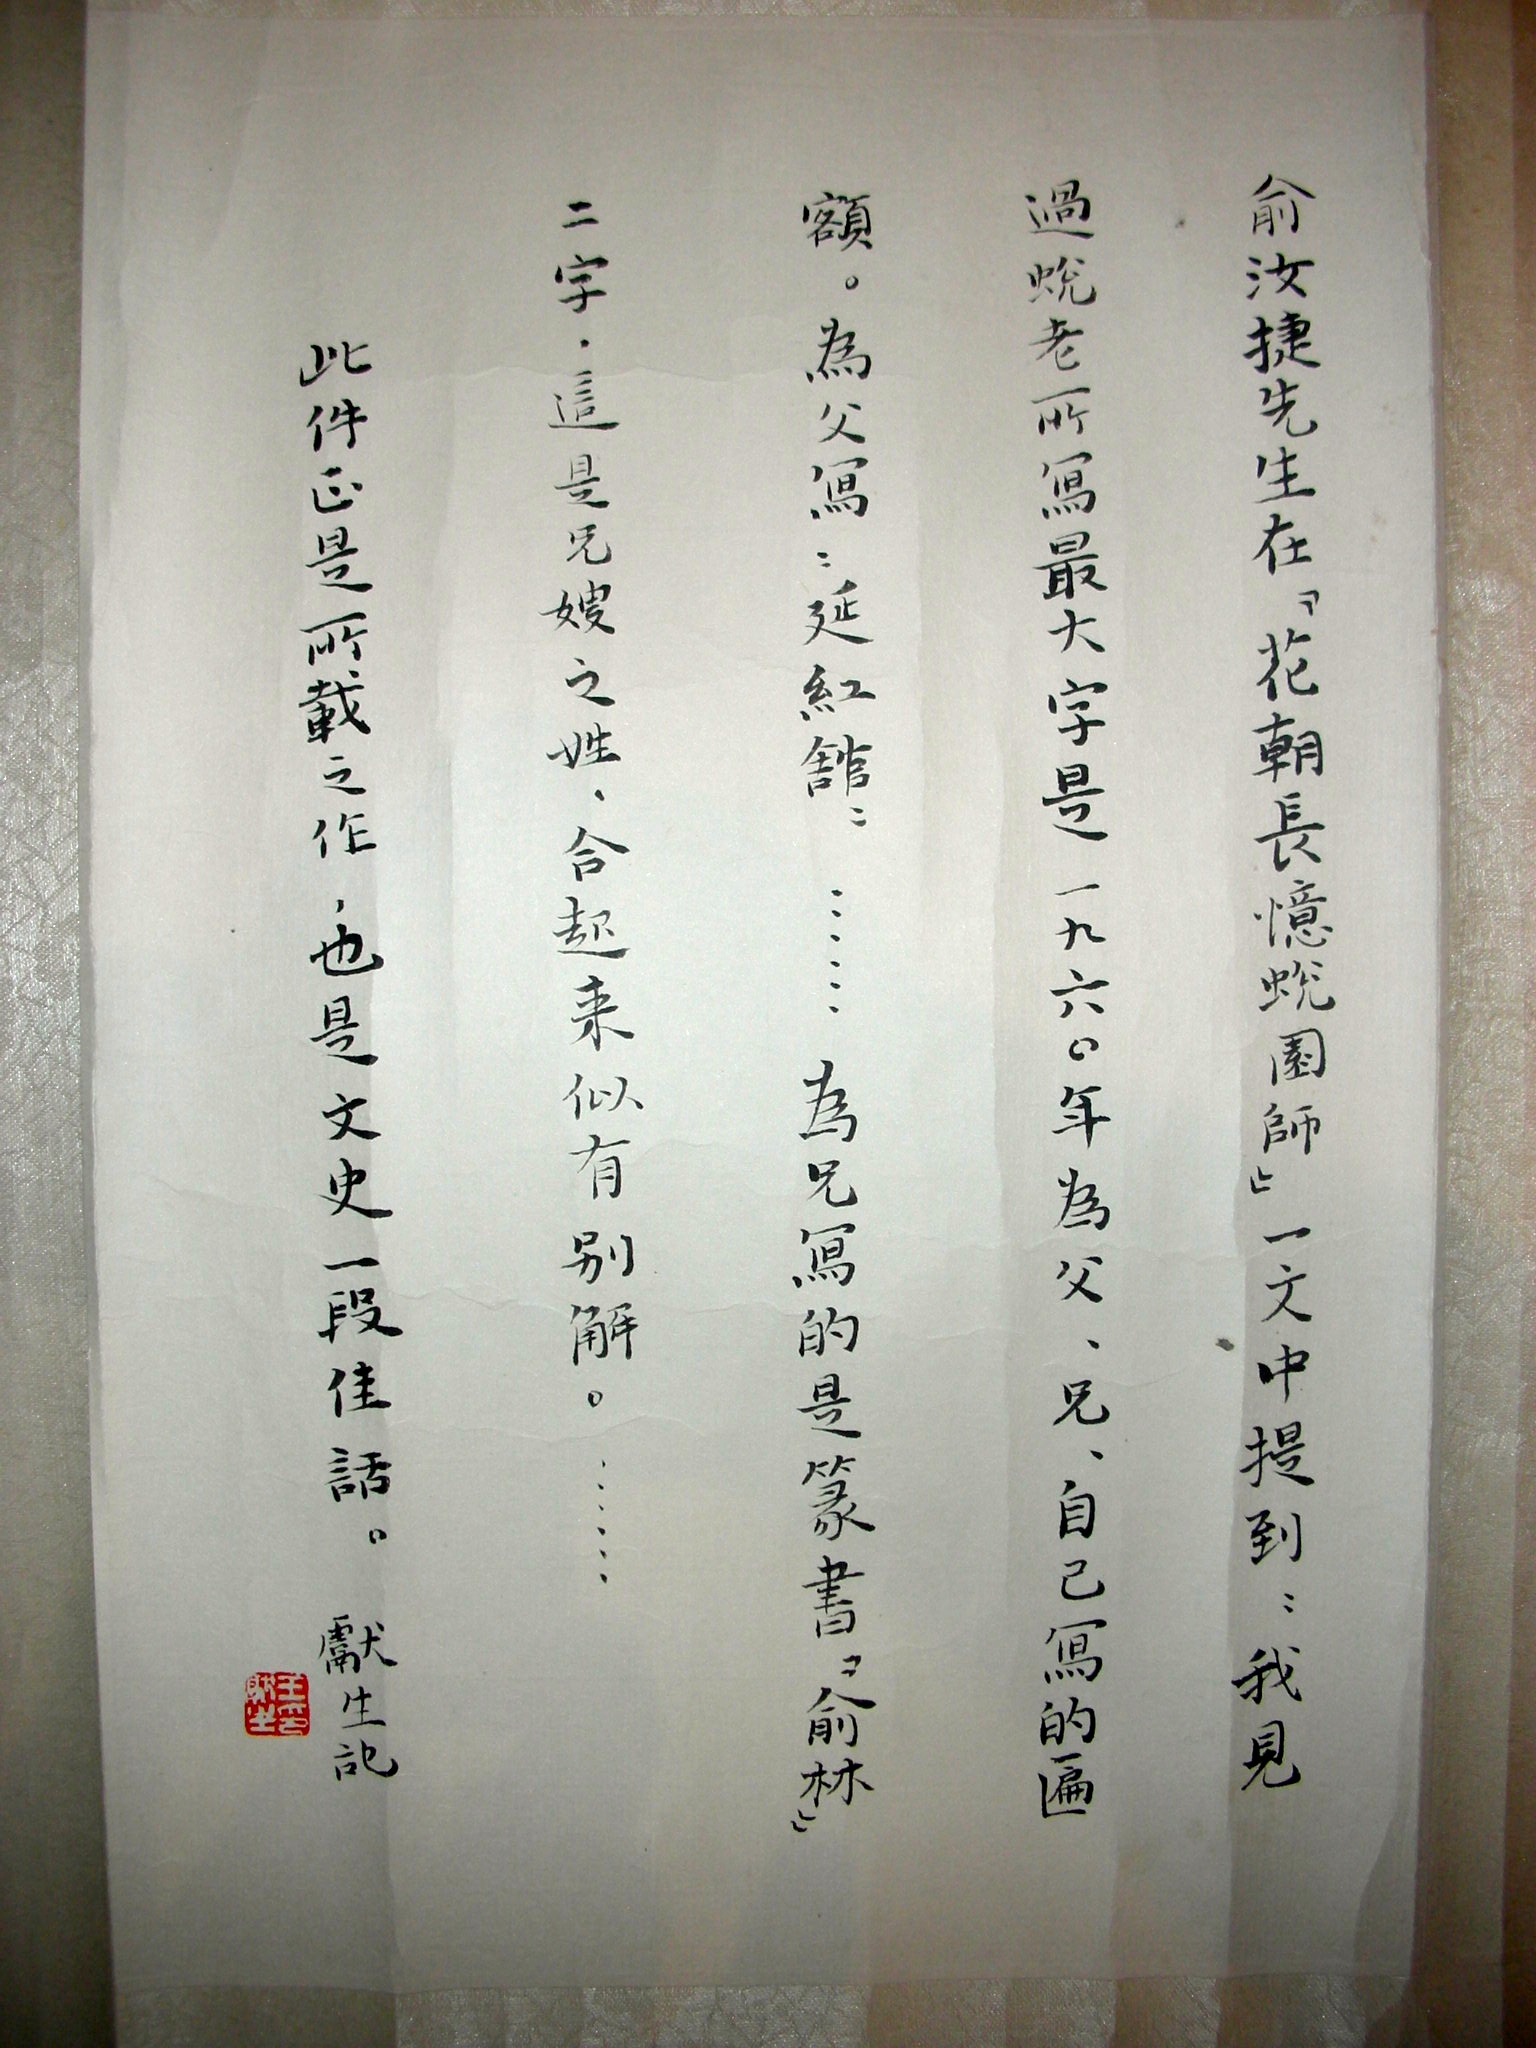 俞汝捷先生在「花朝長憶蛻園師」一文中提到：我見
過蛻老所寫最大字是一九六〇年為父、兄、自己寫的匾
額。為父寫：延紅舘：……為兄寫的是篆書“俞林”
二字，這是兄嫂之姓，合起来似有别解。……
此件正是所載之作，也是文史一段佳話。 獻生記